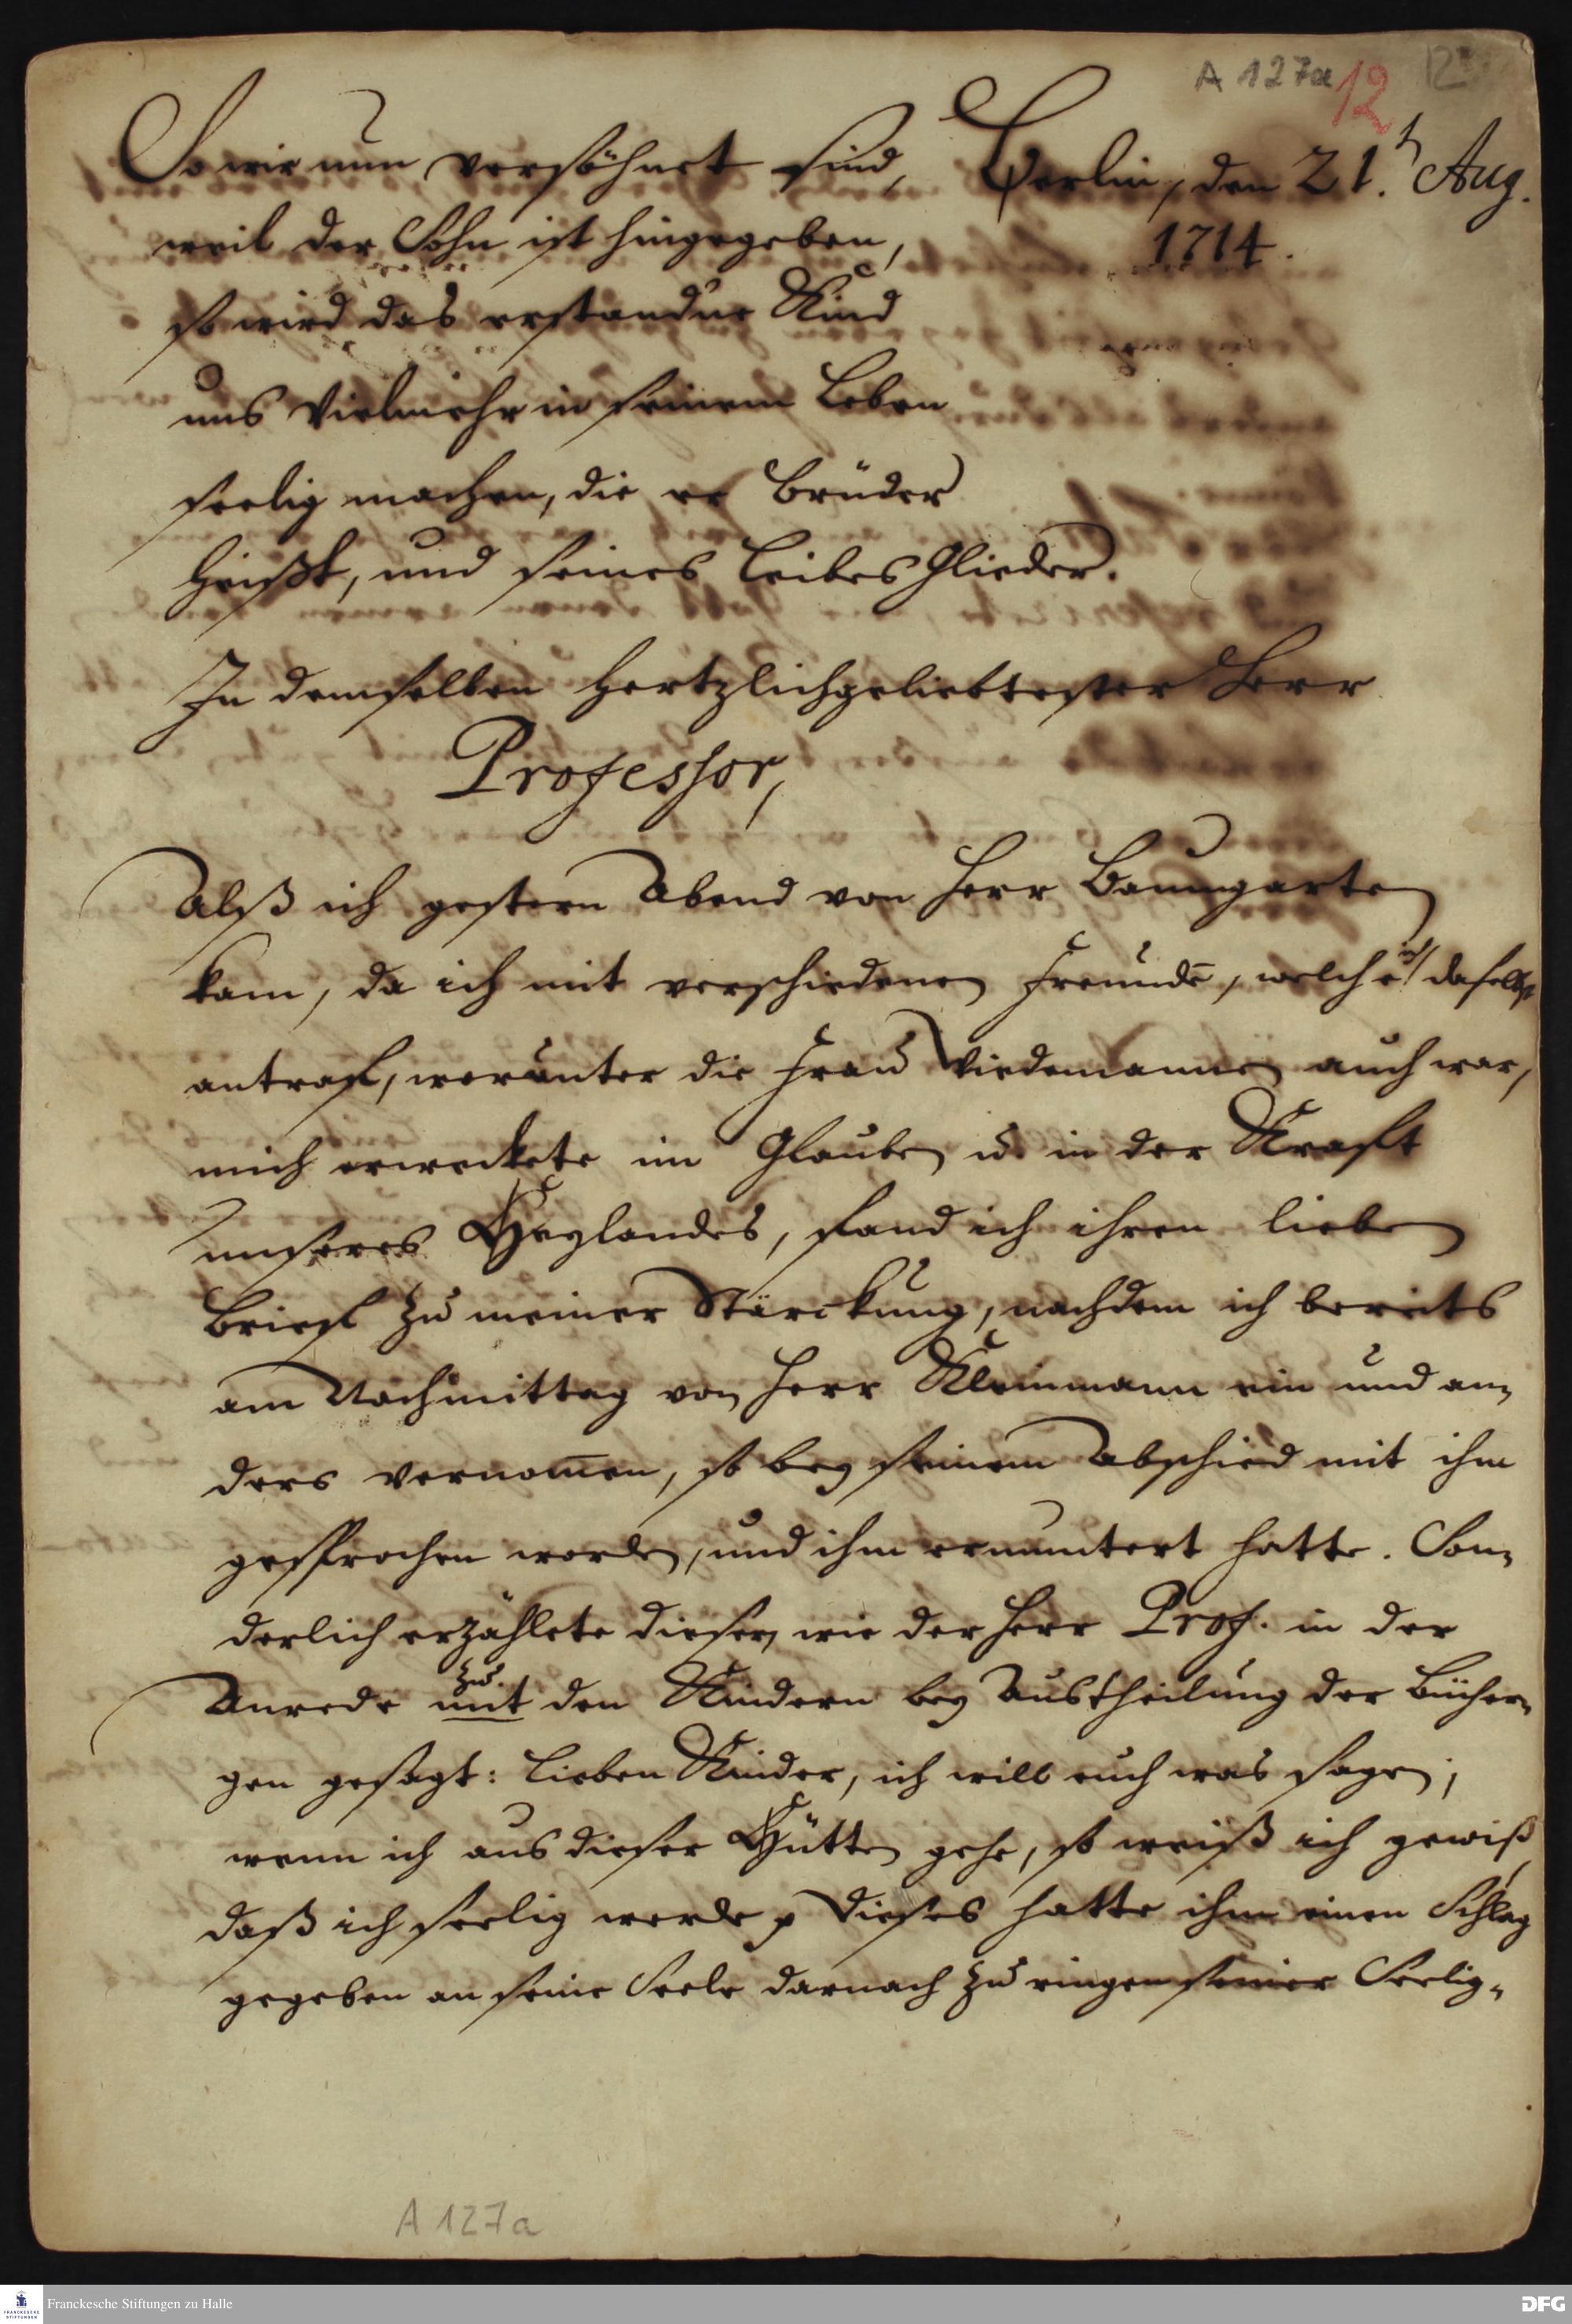 A 127a 12 12
So wir nun versöhnet sind, Berlin, den 21. Aug.
weil der Sohn ist hingegeben, 1714.
so wird das erstandne Kind
uns Vielmehr in seinem Leben
seelig machen, die er Brüder
heißt, und seines Leibes Glieder.
In demselben hertzlichgeliebtester Herr
Professor,
Alß ich gestern Abend von Herr Baumgarten
kam, da ich mit verschiedenen Freunde, welche ich daselbst
antraff, worunter die Frau Wiedemannen auch war,
mich erweckete im Glauben u. in der Krafft
unseres Heylandes, fand ich ihren lieben
Brieff zu meiner Stärckung, nachdem ich bereits
am Nachmittag von Herr Kleinmann ein und an-
ders vernom̅en, so bey seinem Abschied mit ihm
gesprochen worden, und ihm ermuntert hatte. Son-
derlich erzählete dieser, wie der Herr Prof. in der
Anrede mit zu den Kindern bey Austheilung der Bücher-
gen gesagt: Lieben Kinder, ich will euch was sagen,
wenn ich aus dieser Hütten gehe, so weiß ich gewiß,
daß ich seelig werde p Dieses hatte ihm einen Schlag
gegeben an seine Seele darnach zu ringen seiner Seelig-
A 127a
Franckesche Stiftungen zu Halle
DFG